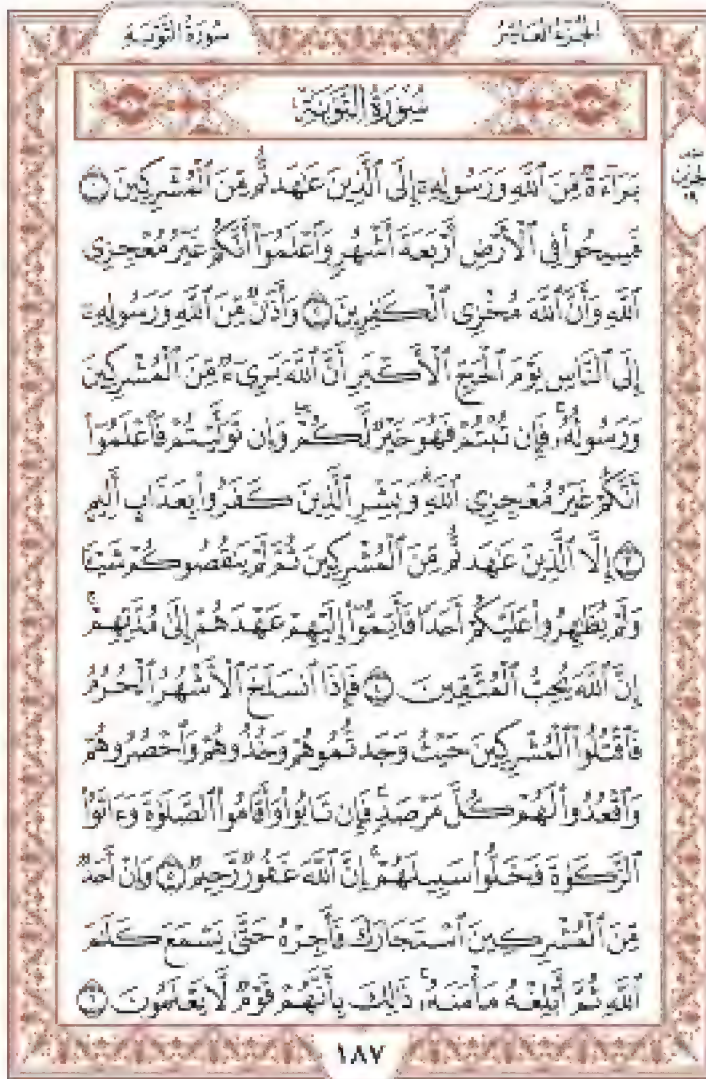 سُورَةُ التَّوْبَةِ
الجُزْءُ العَاشِرُ
سُورَةُ التَّوْبَةِ
بَرَآءَةٌ مِّنَ ٱللَّهِ وَرَسُولِهِۦٓ إِلَى ٱلَّذِينَ عَٰهَدتُّم مِّنَ ٱلْمُشْرِكِينَ ١
فَسِيحُوا۟ فِى ٱلْأَرْضِ أَرْبَعَةَ أَشْهُرٍ وَٱعْلَمُوٓا۟ أَنَّكُمْ غَيْرُ مُعْجِزِى
ٱللَّهِ وَأَنَّ ٱللَّهَ مُخْزِى ٱلْكَٰفِرِينَ ٢ وَأَذَٰنٌ مِّنَ ٱللَّهِ وَرَسُولِهِۦٓ
إِلَى ٱلنَّاسِ يَوْمَ ٱلْحَجِّ ٱلْأَكْبَرِ أَنَّ ٱللَّهَ بَرِىٓءٌ مِّنَ ٱلْمُشْرِكِينَ
وَرَسُولُهُۥ فَإِن تُبْتُمْ فَهُوَ خَيْرٌ لَّكُمْ وَإِن تَوَلَّيْتُمْ فَٱعْلَمُوٓا۟
أَنَّكُمْ غَيْرُ مُعْجِزِى ٱللَّهِ وَبَشِّرِ ٱلَّذِينَ كَفَرُوا۟ بِعَذَابٍ أَلِيمٍ
٣ إِلَّا ٱلَّذِينَ عَٰهَدتُّم مِّنَ ٱلْمُشْرِكِينَ ثُمَّ لَمْ يَنقُصُوكُمْ شَيْـًٔا
وَلَمْ يُظَٰهِرُوا۟ عَلَيْكُمْ أَحَدًا فَأَتِمُّوٓا۟ إِلَيْهِمْ عَهْدَهُمْ إِلَىٰ مُدَّتِهِمْ
إِنَّ ٱللَّهَ يُحِبُّ ٱلْمُتَّقِينَ ٤ فَإِذَا ٱنسَلَخَ ٱلْأَشْهُرُ ٱلْحُرُمُ
فَٱقْتُلُوا۟ ٱلْمُشْرِكِينَ حَيْثُ وَجَدتُّمُوهُمْ وَخُذُوهُمْ وَٱحْصُرُوهُمْ
وَٱقْعُدُوا۟ لَهُمْ كُلَّ مَرْصَدٍ فَإِن تَابُوا۟ وَأَقَامُوا۟ ٱلصَّلَوٰةَ وَءَاتَوُا۟
ٱلزَّكَوٰةَ فَخَلُّوا۟ سَبِيلَهُمْ إِنَّ ٱللَّهَ غَفُورٌ رَّحِيمٌ ٥ وَإِنْ أَحَدٌ
مِّنَ ٱلْمُشْرِكِينَ ٱسْتَجَارَكَ فَأَجِرْهُ حَتَّىٰ يَسْمَعَ كَلَٰمَ
ٱللَّهِ ثُمَّ أَبْلِغْهُ مَأْمَنَهُۥ ذَٰلِكَ بِأَنَّهُمْ قَوْمٌ لَّا يَعْلَمُونَ ٦
١٨٧